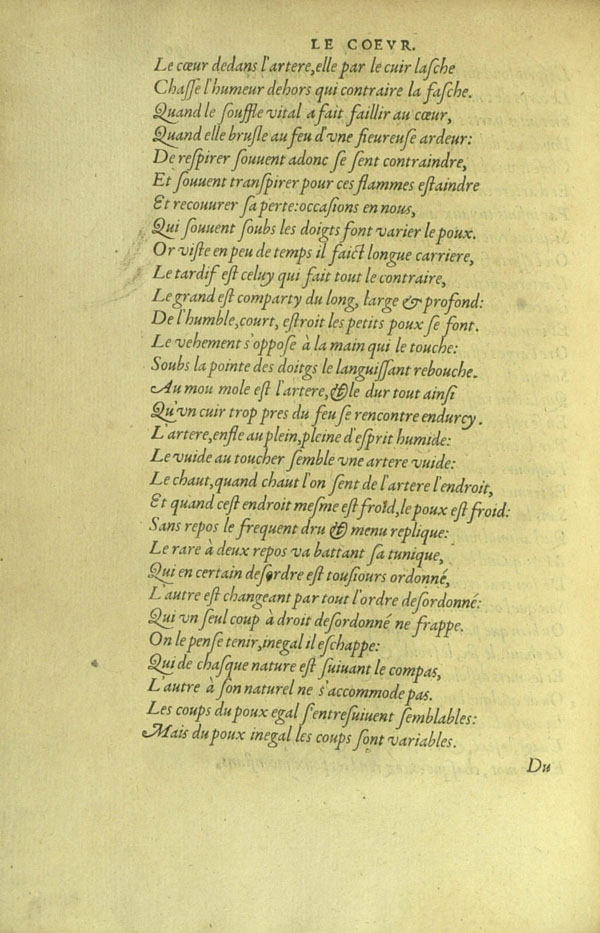 LE COEVR.
Le cœur dedans l'artere,elle par le cuir laſche
Chaſſe l'humeur dehors qui contraire la faſche.
Quand le ſouffle vital a fait faillir au cœur,
Quand elle bruſle au feu d'vne fieureuſe ardeur:
De reſpirer ſouuent adonc ſe ſent contraindre,
Et ſouuent tranſpirer pour ces flammes eſtaindre
Et recouurer ſa perte:occaſions en nous,
Qui ſouuent ſoubs les doigts font varier le poux.
Or viſte en peu de temps il faict longue carriere,
Le tardif eſt celuy qui fait tout le contraire,
Le grand eſt comparty du long, large & profond:
De l'humble,court, eſtroit les petits poux ſe font.
Le vehement s'oppoſe à la main qui le touche:
Soubs la pointe des doitgs le languiſſant rebouche.
Au mou mole eſt l'artere,& le dur tout ainſi
Qu'vn cuir trop pres du feu ſe rencontre endurcy.
L'artere,enfle au plein,pleine d'eſprit humide:
Le vuide au toucher ſemble vne artere vuide:
Le chaut,quand chaut l'on ſent de l'artere l'endroit,
Et quand ceſt endroit meſme eſt froid,le poux eſt froid:
Sans repos le frequent dru & menu replique:
Le rare à deux repos va battant ſa tunique,
Qui en certain deſordre eſt touſiours ordonné,
L'autre eſt changeant par tout l'ordre deſordonné:
Qui vn ſeul coup à droit deſordonné ne frappe.
On le penſe tenir,inegal il eſchappe:
Qui de chaſque nature eſt ſuiuant le compas,
L'autre à ſon naturel ne s'accommode pas.
Les coups du poux egal s'entreſuiuent ſemblables:
Mais du poux inegal les coups ſont variables.
Du